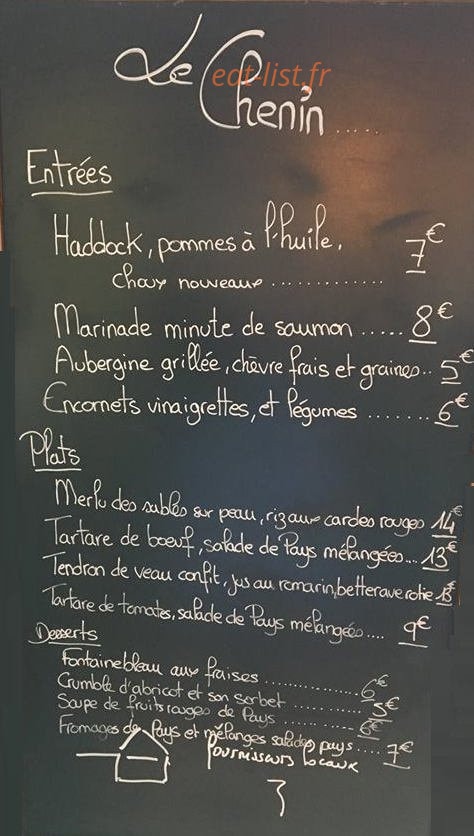 Le Chenin.....
eat-list.fr
Entrées
Haddock, pommes à l'huile,
choux nouveaux ............. 7€
Marinade minute de saumon ..... 8€
Aubergine grillée, chèvre frais et graines.. 5€
Encornets vinaigrettes, et légumes ....... 6€
Plats
Merlu des sables sur peau, riz aux cardes rouges 14€
Tartare de boeuf, salade de Pays mélangées... 13€
Tendron de veau confit, jus au romarin, betterave rotie
Tartare de tomates, salade de Pays mélangées.... 9€
Desserts
Fontainebleau aux fraises .............. 6€
Crumble d'abricot et son sorbet ........... 5€
Soupe de fruits rouges de Pays ........... 6€
Fromages de Pays et mélanges salades pays .... 7€
Fournisseurs locaux